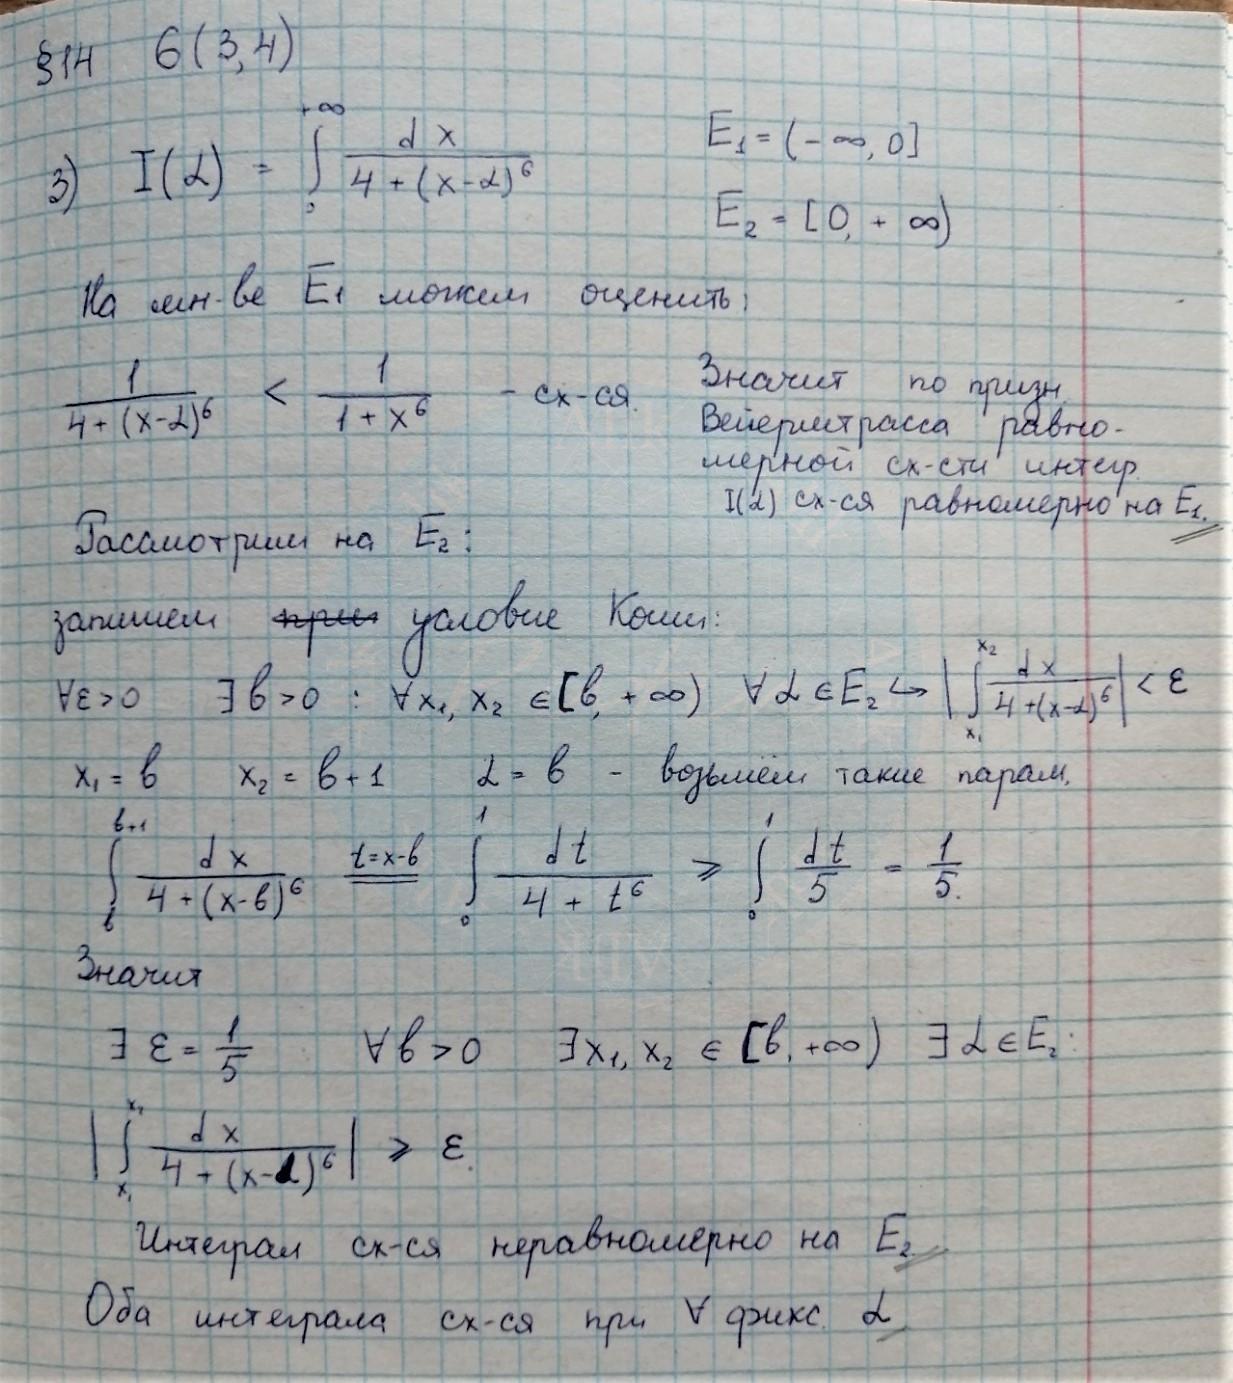 §14 6(3,4)
3) I(α) = ∫₀^{+∞} dx / (4 + (x-α)⁶) E₁ = (-∞, 0]
E₂ = [0, +∞)
На мн-ве E₁ можем оценить:
1 / (4 + (x-α)⁶) < 1 / (1 + x⁶) - сх-ся.
Значит по призн.
Вейерштрасса равно-
мерной сх-сти интегр.
I(α) сх-ся равномерно на E₁.
Рассмотрим на E₂:
запишем условие Коши:
∀ε>0 ∃b>0 : ∀x₁, x₂ ∈ [b, +∞) ∀α∈E₂ ↪ |∫_{x₁}^{x₂} dx / (4+(x-α)⁶)| < ε
x₁ = b x₂ = b+1 α = b - возьмём такие парам.
∫_b^{b+1} dx / (4 + (x-b)⁶) =^{t=x-b} ∫₀¹ dt / (4 + t⁶) ⩾ ∫₀¹ dt/5 = 1/5.
Значит
∃ ε = 1/5 ∀b>0 ∃x₁, x₂ ∈ [b, +∞) ∃α∈E₂:
|∫_{x₁}^{x₂} dx / (4 + (x-α)⁶)| ⩾ ε.
Интеграл сх-ся неравномерно на E₂
Оба интеграла сх-ся при ∀ фикс. α